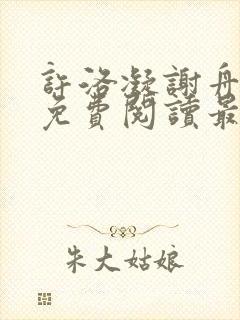 許洛凝謝舟
免費閱讀最
朱大姑娘